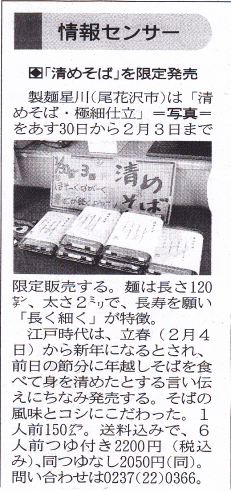 情報センサー
◆「清めそば」を限定発売
製麺星川(尾花沢市)は「清
めそば・極細仕立」＝写真＝
をあす30日から２月３日まで
清め
そば
限定販売する。麺は長さ120
㌢、太さ２㍉で、長寿を願い
「長く細く」が特徴。
江戸時代は、立春（２月４
日）から新年になるとされ、
前日の節分に年越しそばを食
べて身を清めたとする言い伝
えにちなみ発売する。そばの
風味とコシにこだわった。１
人前150㌘。送料込みで、６
人前つゆ付き2200円（税込
み）、同つゆなし2050円(同)。
問い合わせは0237(22)0366。